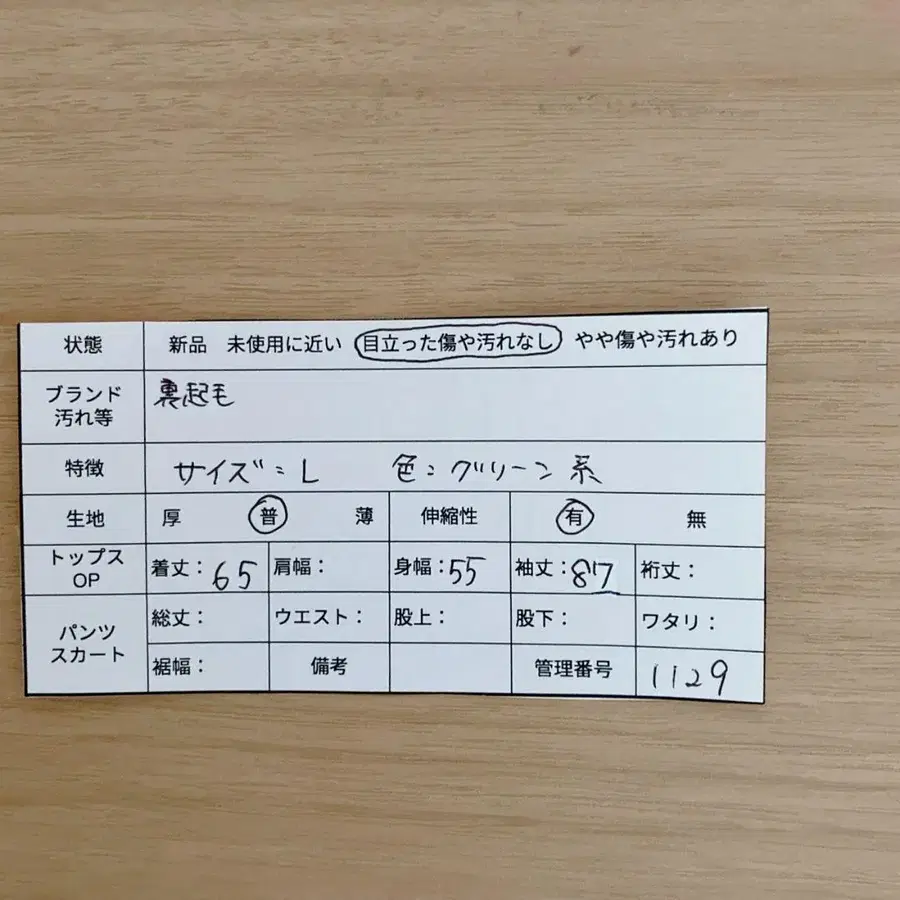 状態 新品 未使用に近い 目立った傷や汚れなし やや傷や汚れあり
ブランド 汚れ等 裏起毛
特徴 サイズ：L 色：グリーン系
生地 厚 普 薄 伸縮性 有 無
トップス OP 着丈：65 肩幅： 身幅：55 袖丈：87 裄丈：
パンツ スカート 総丈： ウエスト： 股上： 股下： ワタリ：
裾幅： 備考 管理番号 1129